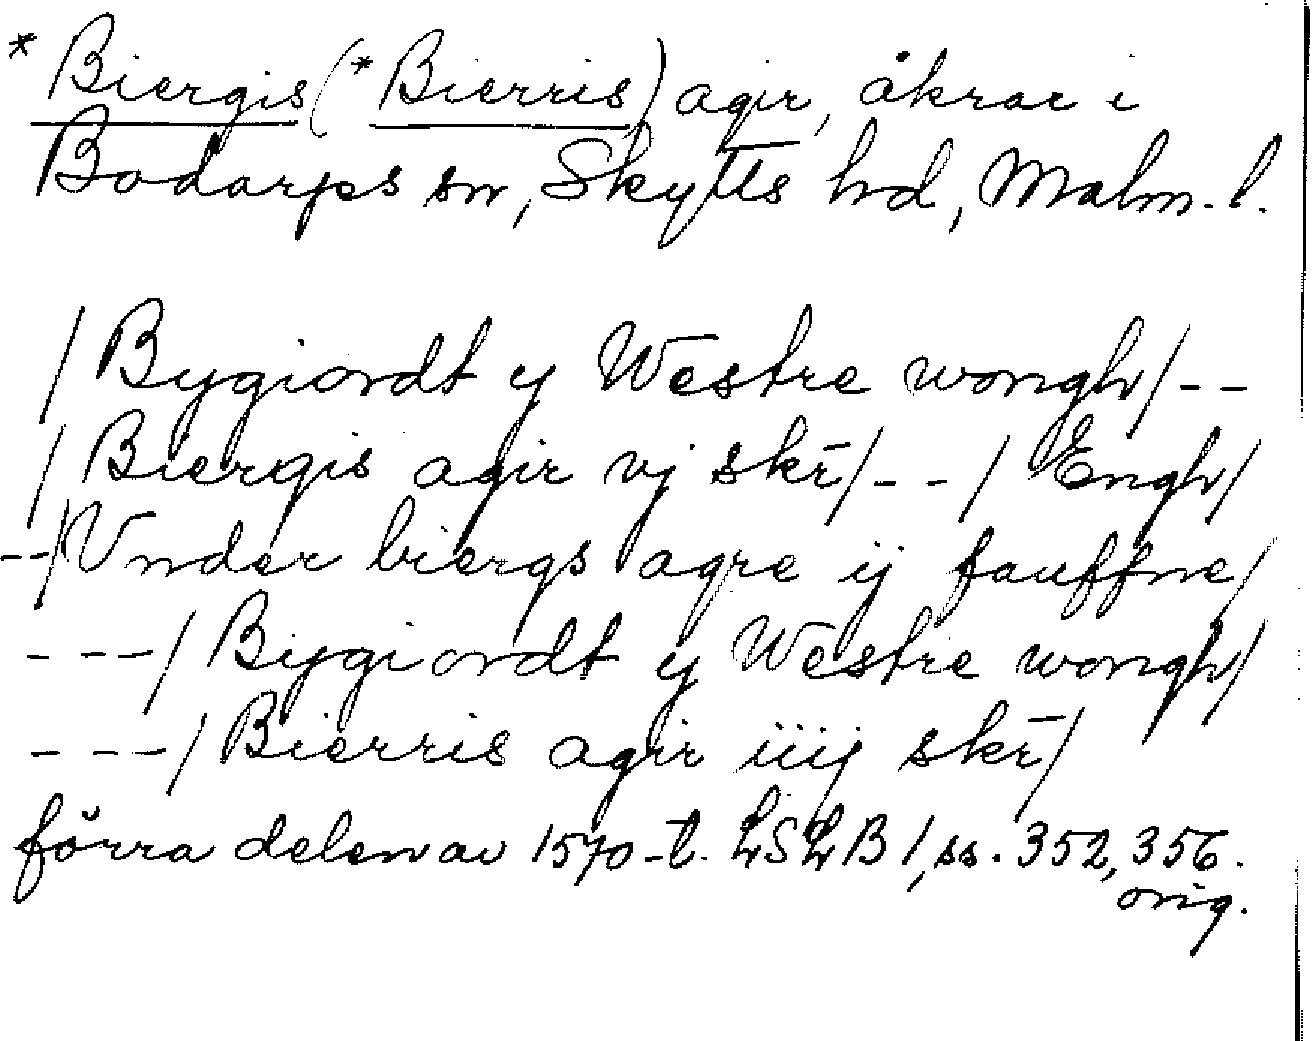 * Biergis (* Bierris) agir, åkrar i
Bodarps sn, Skytts hd, Malm. l.
/ Bygiordt y Westre wongh / - -
/ Biergis agir vj skr̄ / - - / Engh /
- - / Vnder biergs agre ij fauffne /
- - - / Bygiordt y Westre wongh /
- - - / Bierris agir iiij skr̄ /
förra delen av 1570-t. LSLB 1, ss. 352, 356.
orig.